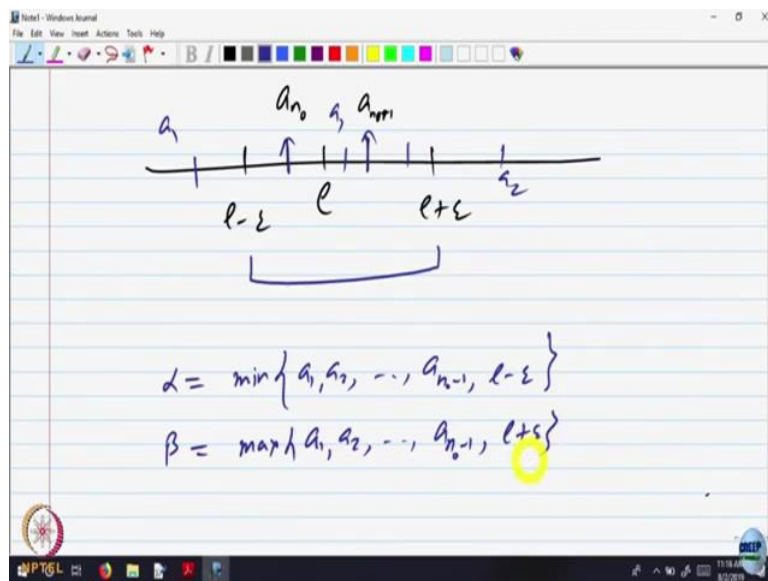 Note1 - Windows Journal
File Edit View Insert Actions Tools Help
B I
a₁ aₙ₀ a₃ aₙ₀₊₁
l-ε l l+ε a₂
α = min{a₁, a₂, ..., aₙ₀₋₁, l-ε}
β = max{a₁, a₂, ..., aₙ₀₋₁, l+ε}
NPTEL
8/2/2019